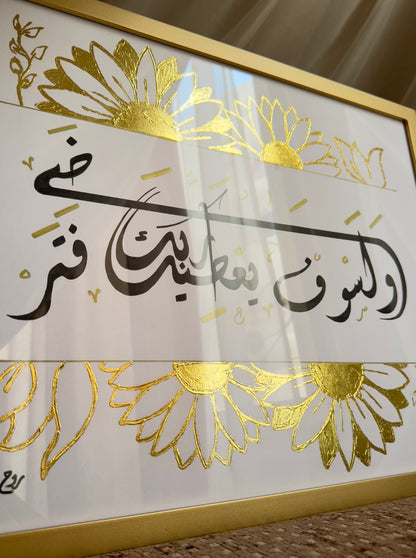 وَلَسَوفَ يُعطِيكَ رَبُّكَ فَتَرضَى